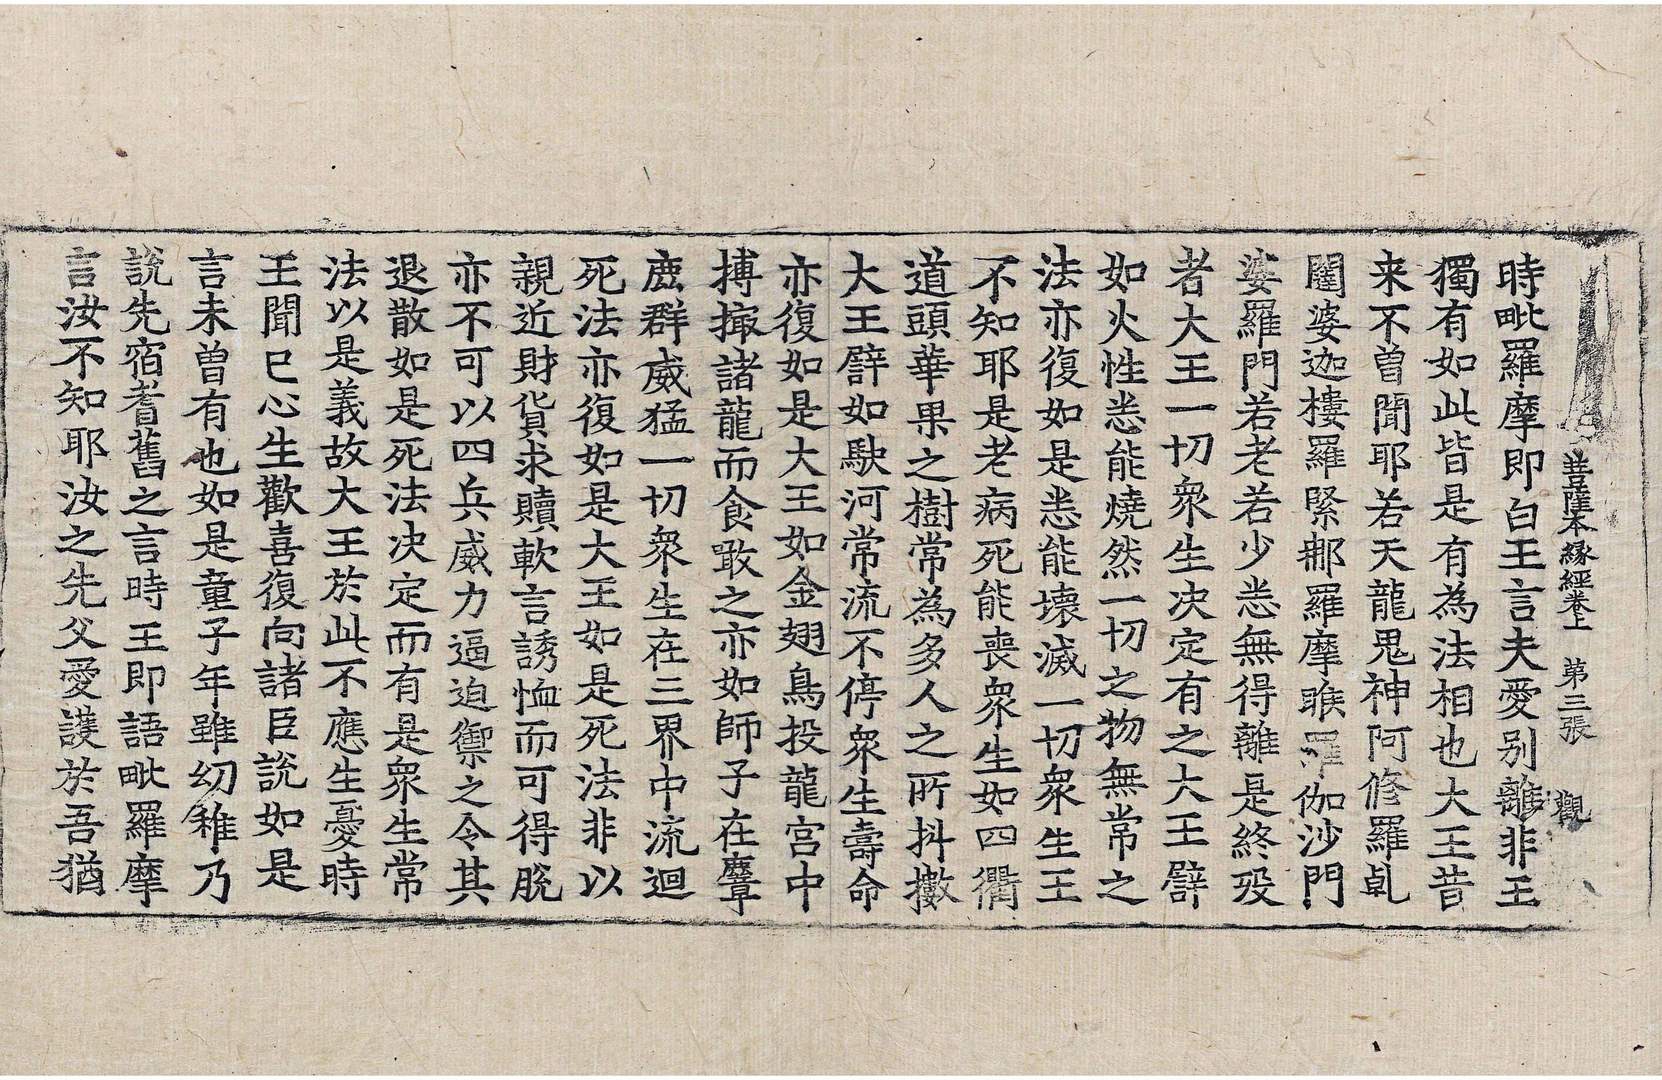 菩薩本縁經卷上　第三張　觀
時毗羅摩即白王言夫愛别離非王
獨有如此皆是有為法相也大王昔
来不曽聞耶若天龍鬼神阿修羅乹
闥婆迦樓羅緊那羅摩睺羅伽沙門
婆羅門若老若少悉無得離是終殁
者大王一切衆生决定有之大王譬
如火性悉能燒然一切之物無常之
法亦復如是悉能壞滅一切衆生王
不知耶是老病死能喪衆生如四衢
道頭華果之樹常為多人之所抖擻
大王譬如駛河常流不停衆生壽命
亦復如是大王如金翅鳥投龍宫中
搏撮諸龍而食噉之亦如師子在麞
鹿群威猛一切衆生在三界中流迴
死法亦復如是大王如是死法非以
親近財貨求贖軟言誘恤而可得脫
亦不可以四兵威力逼迫禦之令其
退散如是死法决定而有是衆生常
法以是義故大王於此不應生憂時
王聞已心生歡喜復向諸臣說如是
言未曽有也如是童子年雖幼稚乃
說先宿耆舊之言時王即語毗羅摩
言汝不知耶汝之先父愛護於吾猶